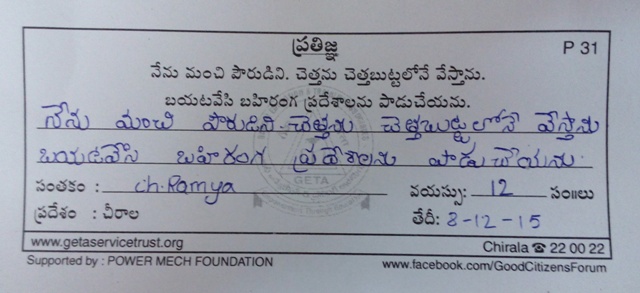 ప్రతిజ్ఞ
P 31
నేను మంచి పౌరుడిని. చెత్తను చెత్తబుట్టలోనే వేస్తాను.
బయటవేసి బహిరంగ ప్రదేశాలను పాడుచేయను.
నేను మంచి పౌరుడిని. చెత్తను చెత్తబుట్టలోనే వేస్తాను
బయటవేసి బహిరంగ ప్రదేశాలను పాడుచేయను.
సంతకం : ch.Ramya వయస్సు: 12 సం॥లు
ప్రదేశం : చీరాల తేదీ: 8-12-15
www.getaservicetrust.org Chirala ☎ 22 00 22
Supported by : POWER MECH FOUNDATION www.facebook.com/GoodCitizensForum
GETA